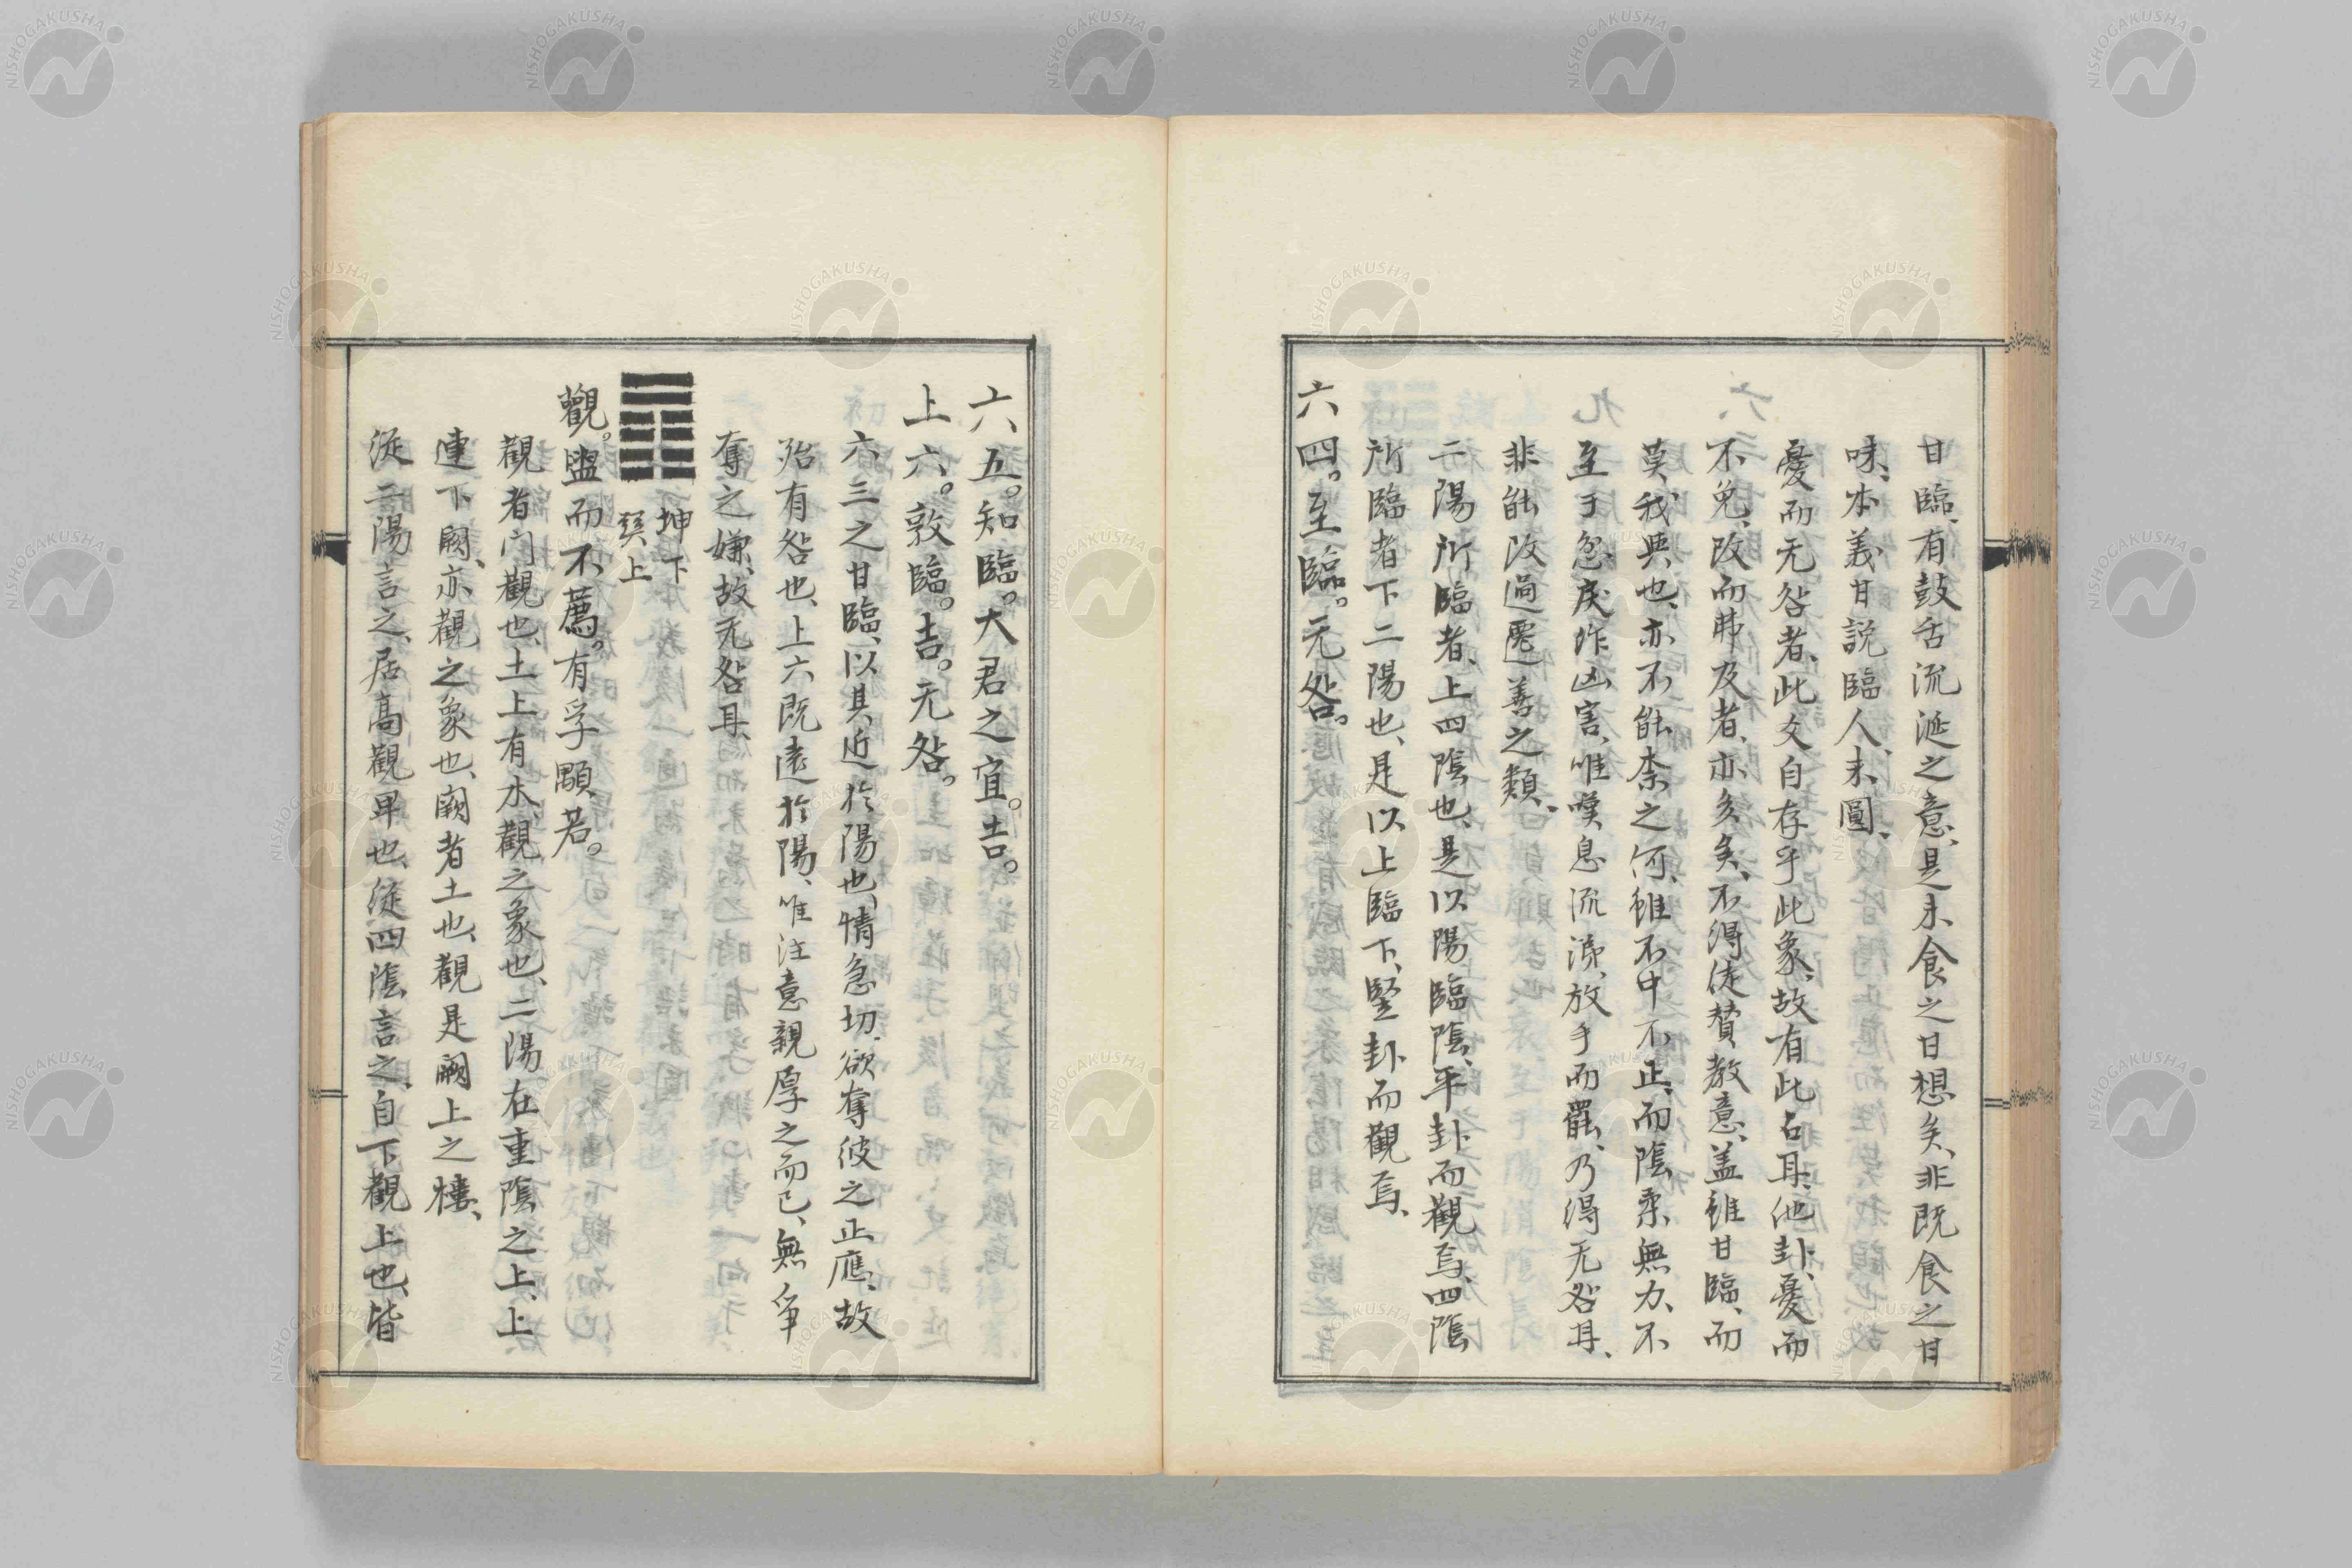 甘臨、有鼓舌流涎之意、是未食之甘想矣、非既食之甘
味、本義甘說臨人、未圓、
憂而无咎者、此爻自存乎此象、故有此占耳、他卦、憂而
不免、改而弗及者、亦多矣、不得徒贊教意、蓋雖甘臨、而
莫我與也、亦不能柰之何、雖不中不正、而陰柔無力、不
至于忿戾作凶害、唯嘆息流涕、放手而罷、乃得无咎耳、
非能改過遷善之類、
二陽所臨者、上四陰也、是以陽臨陰、平卦而觀焉、四陰
所臨者下二陽也、是以上臨下、竪卦而觀焉、
六四。至臨。无咎。
六五。知臨。大君之宜。吉。
上六。敦臨。吉。无咎。
六三之甘臨、以其近於陽也、情急切、欲奪彼之正應、故
殆有咎也、上六既遠於陽、唯注意親厚之而已、無爭
奪之嫌、故无咎耳、
坤下
巽上
觀。盥而不薦。有孚顒若。
觀者門觀也、土上有木、觀之象也、二陽在重陰之上、上
連下闕、亦觀之象也、闕者土也、觀是闕上之樓、
從二陽言之、居高觀卑也、從四陰言之、自下觀上也、皆
NISHOGAKUSHA